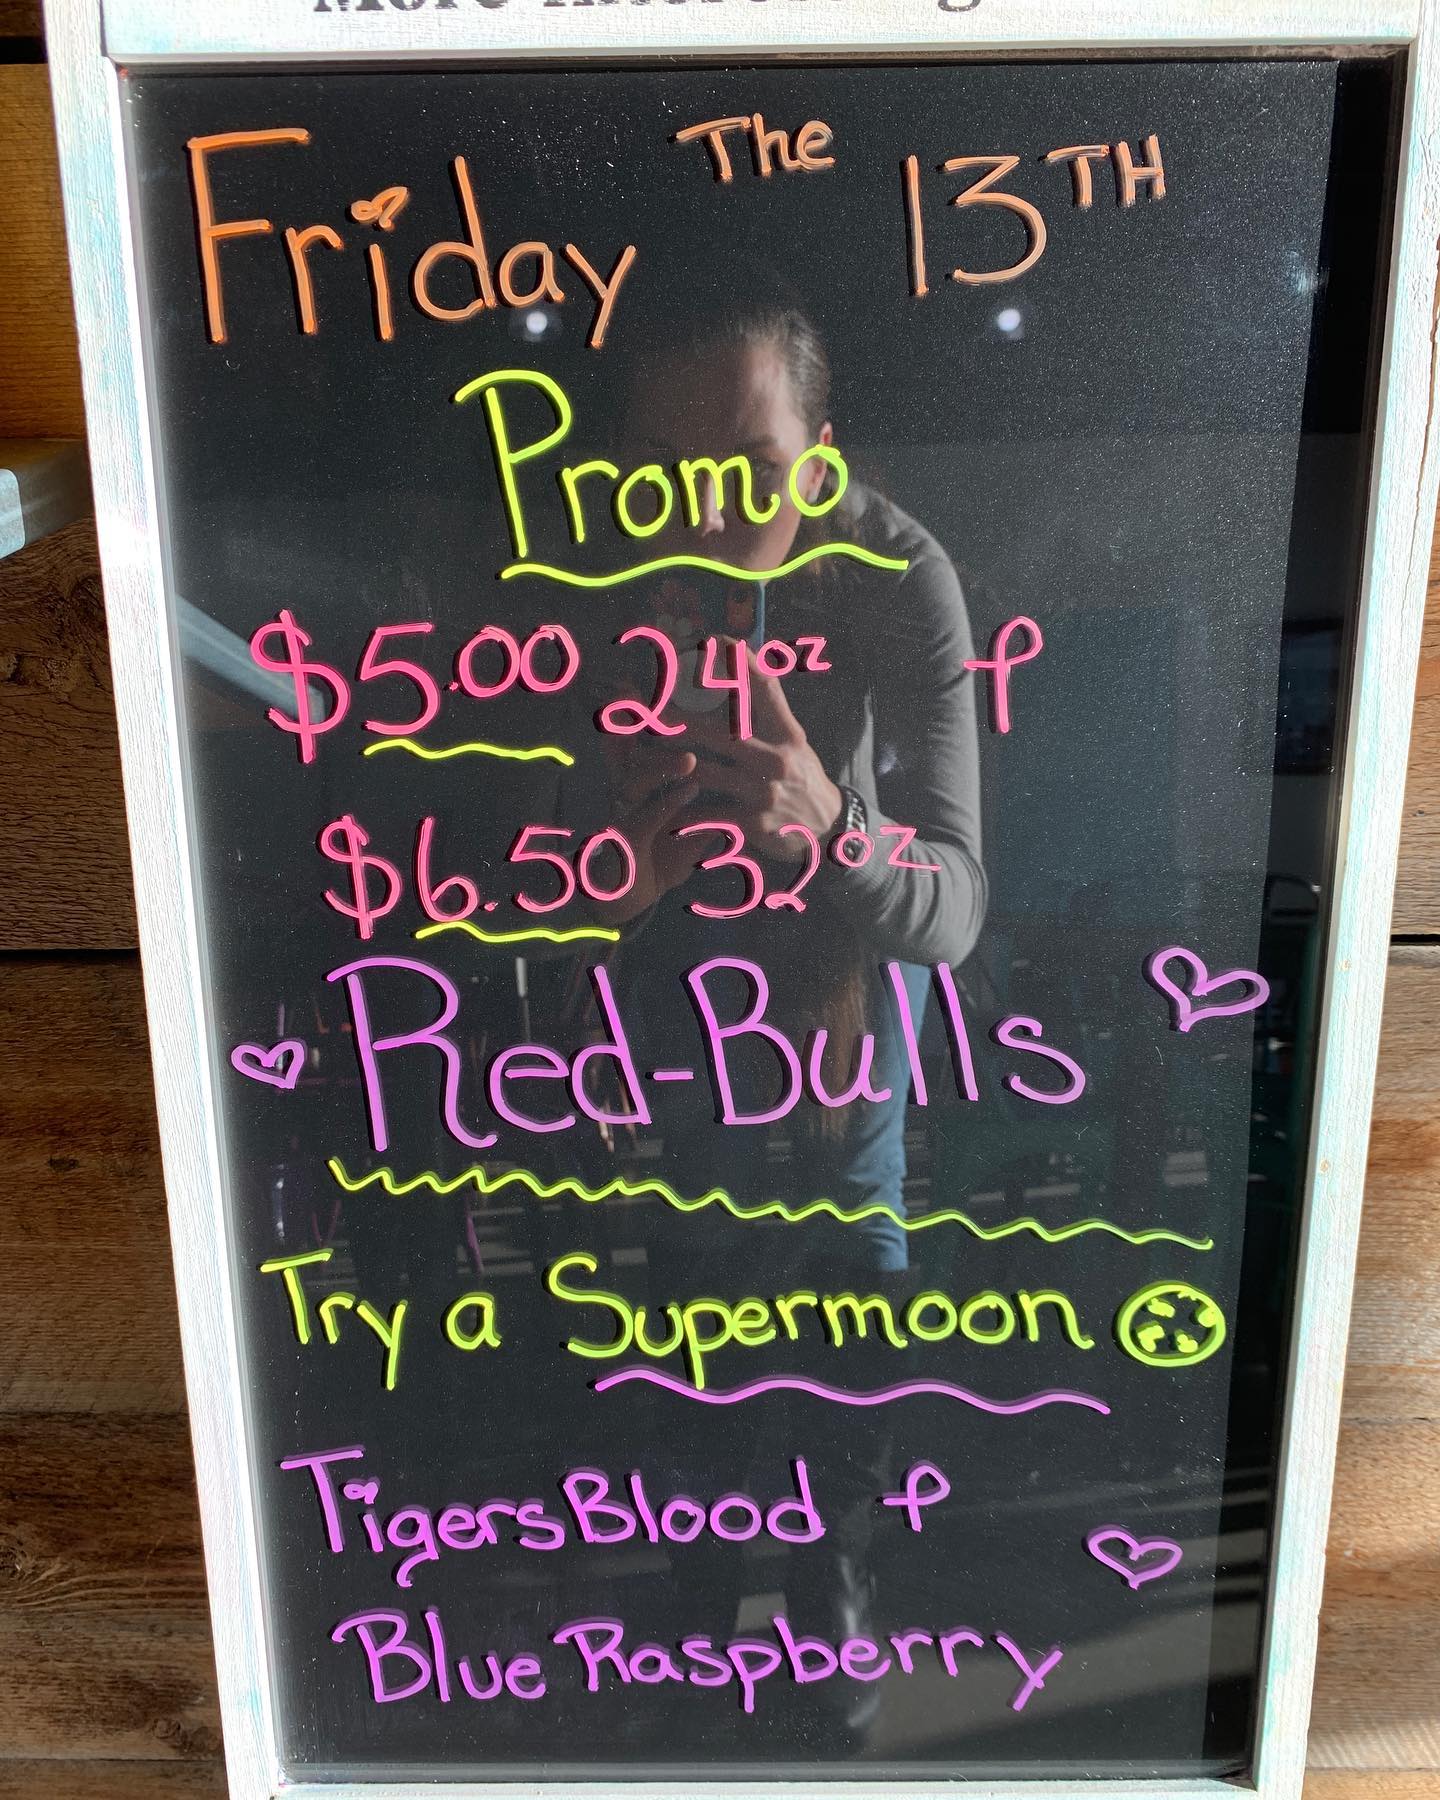 Friday The 13TH
Promo
$5.00 24oz &
$6.50 32oz
Red-Bulls
Try a Supermoon
Tigers Blood &
Blue Raspberry